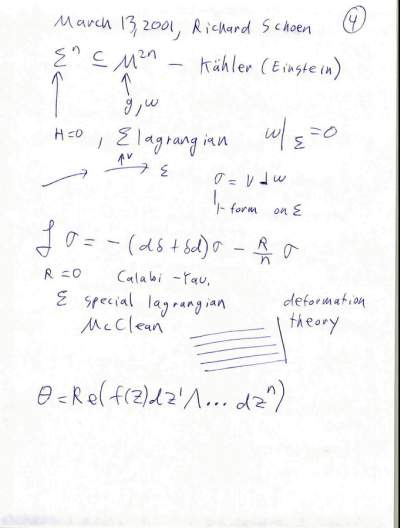 March 13, 2001, Richard Schoen ④
Σⁿ ⊆ M²ⁿ – Kähler (Einstein)
g, ω
H=0, Σ lagrangian ω|_Σ = 0
v Σ σ = v ⌟ ω
1-form on Σ
ℒ σ = -(dδ + δd)σ - R/n σ
R = 0 Calabi-Yau,
Σ special lagrangian deformation
McClean theory
θ = Re(f(z)dz¹ ∧ ... dzⁿ)